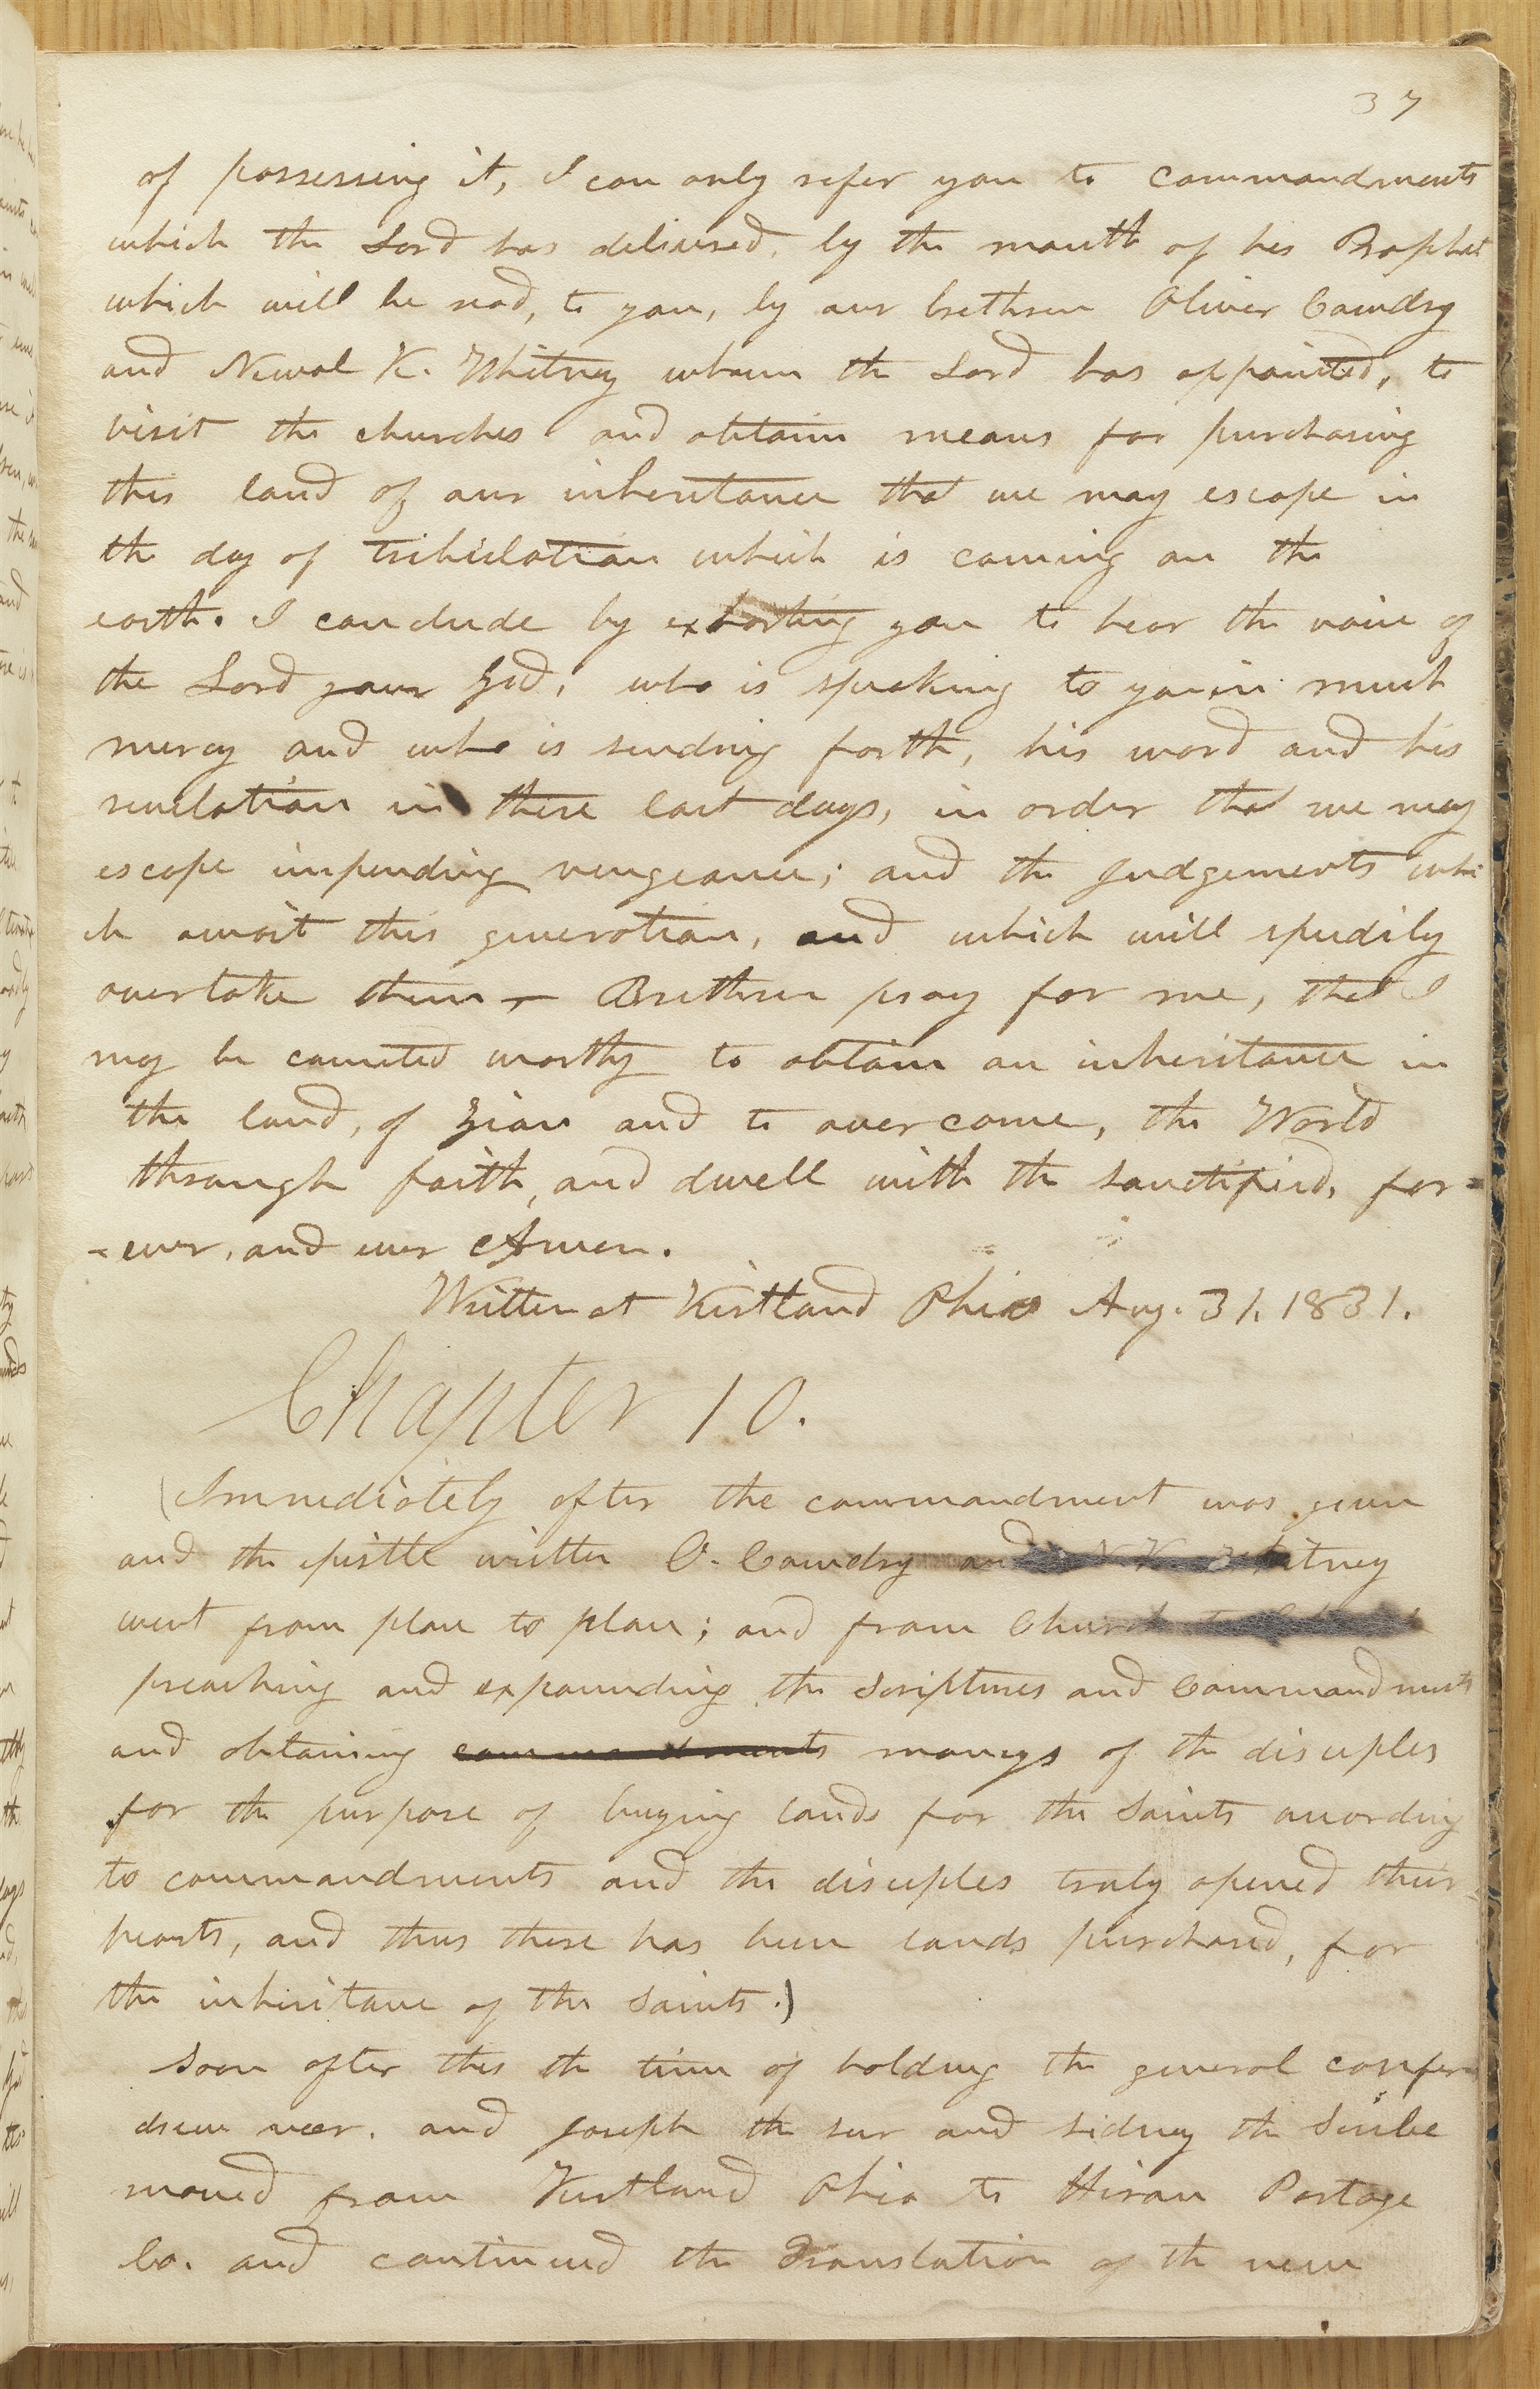 37
of possessing it, I can only refer you to commandments
which the Lord has delivered, by the mouth of his Prophet
which will be read, to you, by our brethren Oliver Cowdry
and Newel K. Whitney whom the Lord has appointed, to
visit the churches and obtain means for purchasing
this land of our inheritance that we may escape in
the day of tribulation which is coming on the
earth. I conclude by exhorting you to hear the voice of
the Lord your God, who is speaking to you in much
mercy and who is sending forth, his word and his
revelation in these last days, in order that we may
escape impending vengeance; and the judgements whi
ch await this generation, and which will speedily
overtake them — Brethren pray for me, that I
may be counted worthy to obtain an inheritance in
the land, of Zion and to overcome, the World
through faith, and dwell with the sanctified, for=
=ever, and ever Amen.
Written at Kirtland Ohio Aug. 31. 1831.
Chapter 10.
(Immediately after the commandment was given
and the epistle written O. Cowdry and N. K. Whitney
went from place to place; and from Church to Church
preaching and expounding the Scriptures and Commandments
and obtaining commandments moneys of the disciples
for the purpose of buying lands for the Saints according
to commandments and the disciples truly opened their
hearts, and thus there has been lands purchased, for
the inheritance of the Saints.)
Soon after this the time of holding the general confer
drew near. and Joseph the seer and sidney the Scribe
moved from Kirtland Ohio to Hiram Portage
Co. and continued the Translation of the new